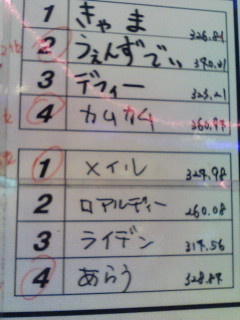 1 きゃま 326.84
2 うぇんずでい 340.41
3 デフィー 325.21
4 カムカム 360.97
1 メイル 324.98
2 ロアルディー 260.08
3 ライデン 314.56
4 あらう 328.87